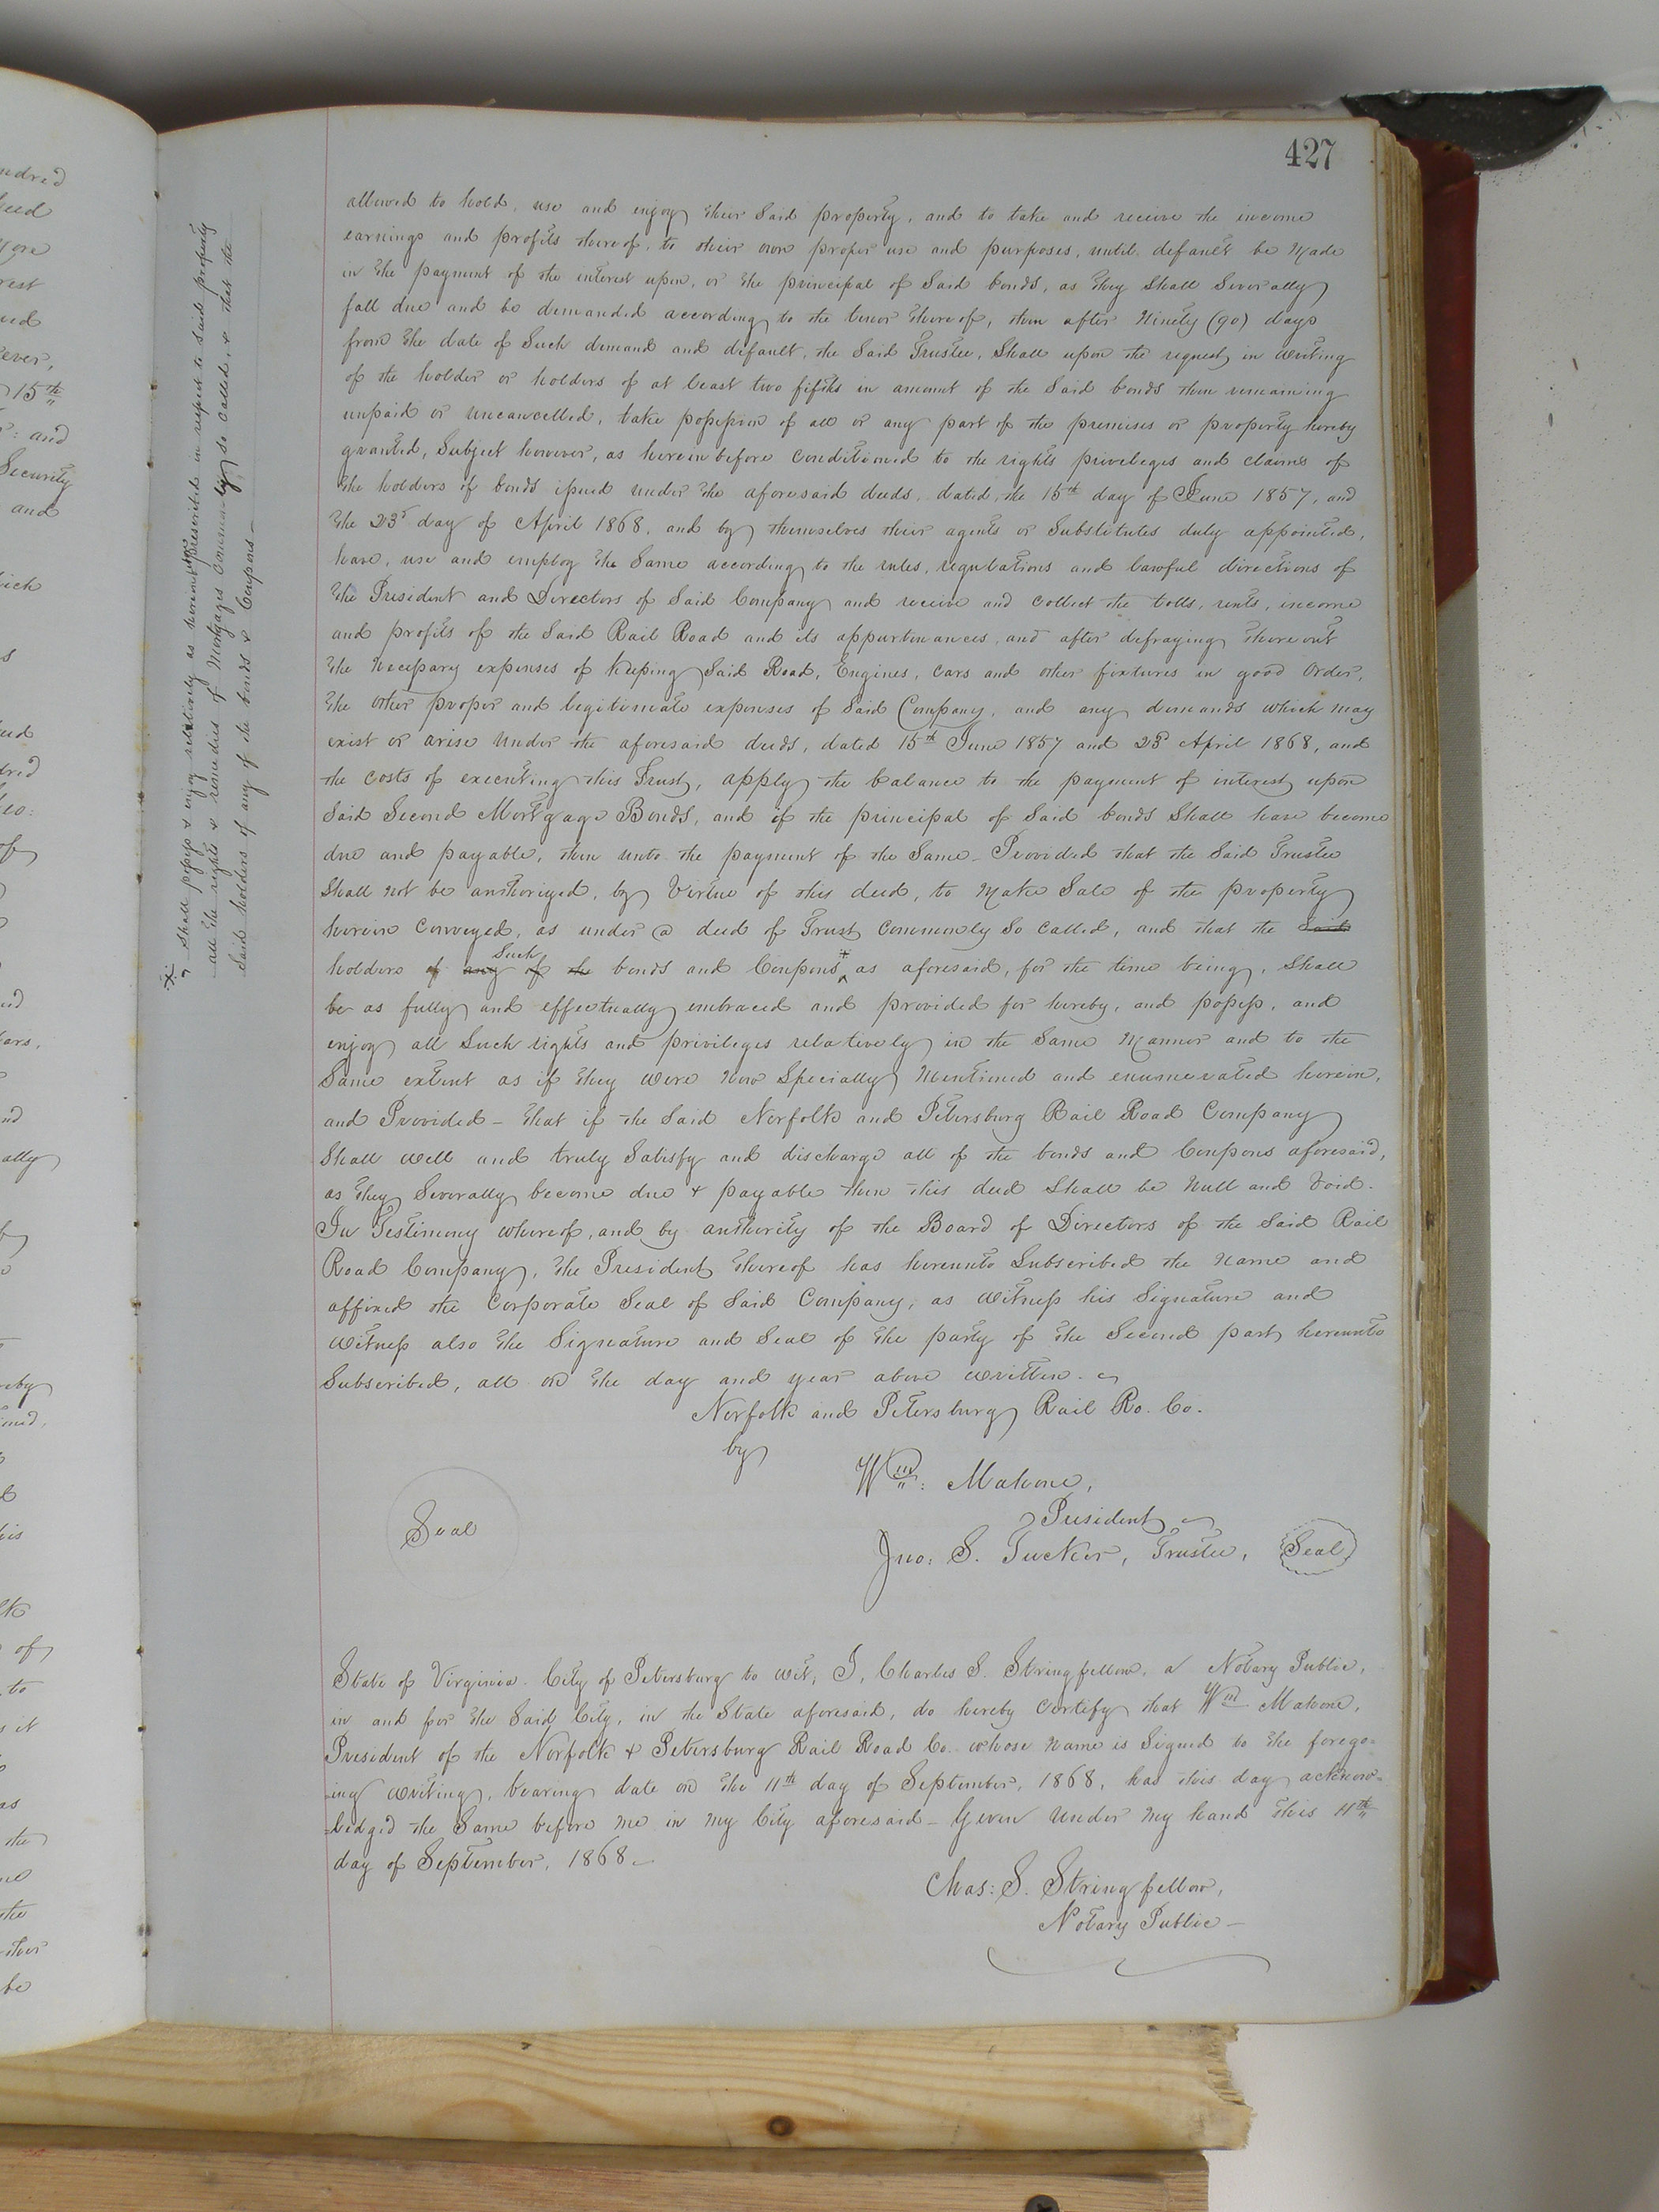 427
allowed to hold, use and enjoy their Said property, and to take and receive the income
earnings and profits thereof, to their own proper use and purposes, until default be Made
in the payment of the interest upon, or the principal of Said bonds, as they Shall Severally
fall due and be demanded according to the tenor thereof, then after Ninety (90) days
from the date of Such demand and default, the Said Trustee, Shall upon the request in Writing
of the holder or holders of at least two fifths in amount of the Said bonds then remaining
unpaid or uncancelled, take possession of all or any part of the premises or property hereby
granted, Subject however, as herein before Conditioned to the rights privileges and claims of
the holders of bonds issued under the aforesaid deeds, dated, the 15th day of June 1857, and
the 23d day of April 1868, and by themselves their agents or Substitutes duly appointed,
have, use and employ the Same according to the rules, regulations and lawful directions of
the President and Directors of Said Company and receive and Collect the tolls, rents, income
and profits of the Said Rail Road and its appurtenances, and after defraying thereout
the Necessary expenses of Keeping Said Road, Engines, Cars and other fixtures in good Order,
the other proper and legitimate expenses of Said Company, and any demands which may
exist or arise under the aforesaid deeds, dated 15th June 1857 and 23d April 1868, and
the Costs of executing this Trust, apply the balance to the payment of interest upon
Said Second Mortgage Bonds, and if the principal of Said bonds Shall have become
due and payable, then unto the payment of the Same - Provided that the Said Trustee
Shall not be authorized, by Virtue of this deed, to Make Sale of the property
herein Conveyed, as under a deed of Trust Commonly So Called, and that the Said
holders of any Such of the bonds and Coupons * as aforesaid, for the time being, Shall
be as fully and effectually embraced and provided for hereby, and possess, and
enjoy all Such rights and privileges relatively in the Same Manner and to the
Same extent as if they were Now Specially Mentioned and enumerated herein,
and Provided - that if the Said Norfolk and Petersburg Rail Road Company
Shall well and truly Satisfy and discharge all of the bonds and Coupons aforesaid,
as they Severally become due & payable then this deed Shall be Null and Void.
In Testimony whereof, and by authority of the Board of Directors of the Said Rail
Road Company, the President thereof has hereunto Subscribed the Name and
affixed the Corporate Seal of Said Company, as Witness his Signature and
Witness also the Signature and Seal of the party of the Second part hereunto
Subscribed, all on the day and year above written.
Norfolk and Petersburg Rail Ro. Co.
by
Wm: Mahone,
President
Seal
Jno: S. Tucker, Trustee, Seal
State of Virginia. City of Petersburg to wit, I, Charles S. Stringfellow, a Notary Public,
in and for the Said City, in the State aforesaid, do hereby Certify that Wm Mahone,
President of the Norfolk & Petersburg Rail Road Co. whose Name is Signed to the forego-
-ing writing, bearing date on the 11th day of September, 1868, has this day acknow-
-ledged the Same before me in my City aforesaid - Given under My hand this 11th
day of September, 1868.
Chas: S. Stringfellow,
Notary Public -
* Shall possess & enjoy relatively as hereinbefore prescribed in respect to said property
all the rights & remedies of Mortgages Commonly so Called, & that the
said holders of any of the bonds & Coupons -